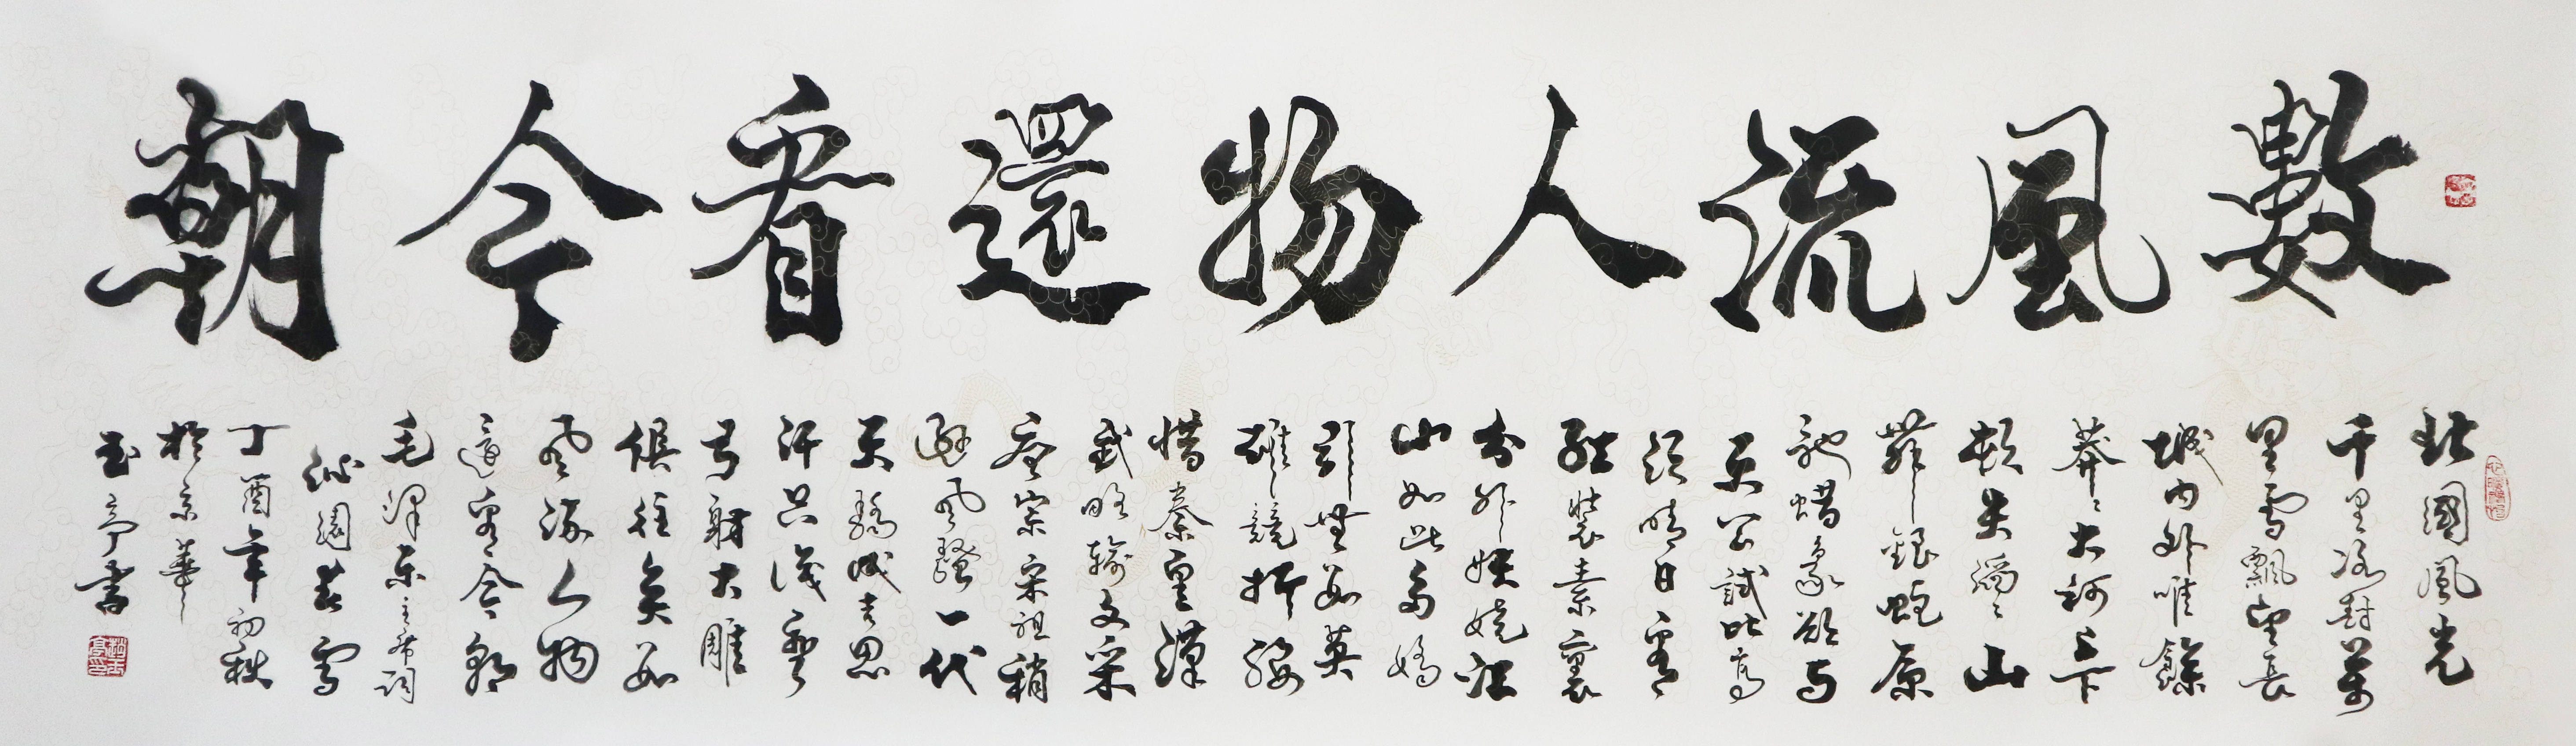 數風流人物還看今朝
北國風光
千里冰封萬
里雪飄望長
城內外唯餘
莽々大河上下
頓失滔々山
舞銀蛇原
馳蠟象欲與
天公試比高
須晴日看
紅裝素裹
分外妖嬈江
山如此多嬌
引無數英
雄競折腰
惜秦皇漢
武略輸文采
唐宗宋祖稍
遜風騷一代
天驕成吉思
汗只識彎
弓射大雕
俱往矣數
風流人物
還看今朝
毛澤東主席詞
沁園春雪
丁酉年初秋
於京華
玉亭書